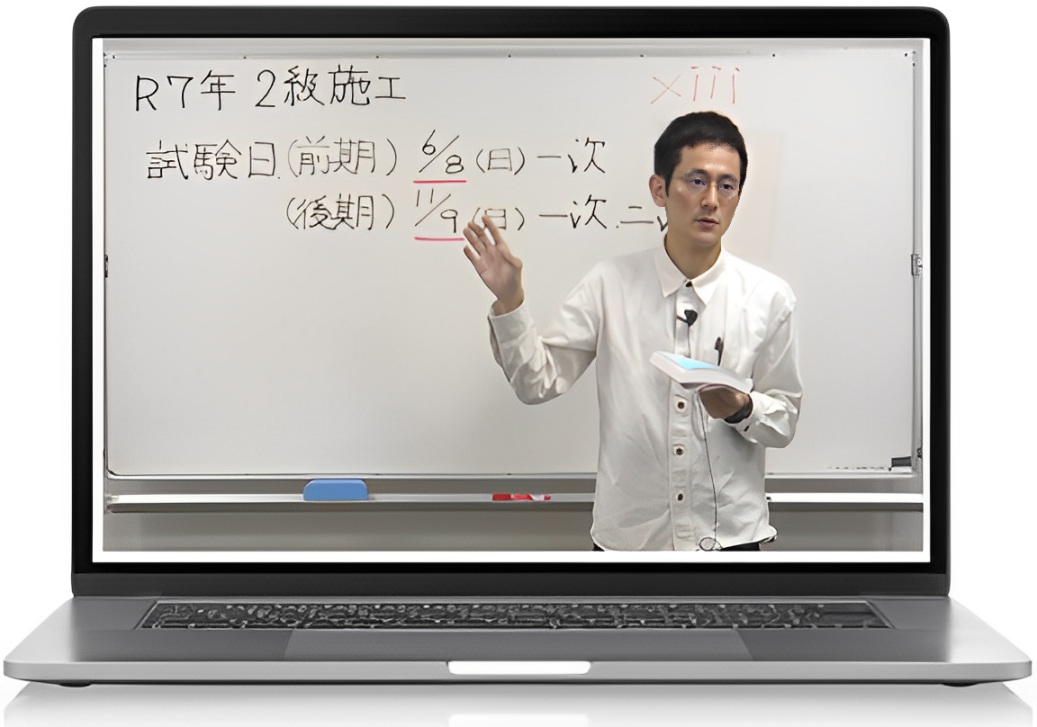 R7年 2級施工
xiii
試験日(前期) 6/8(日)一次
(後期) 11/9(日)一次.二